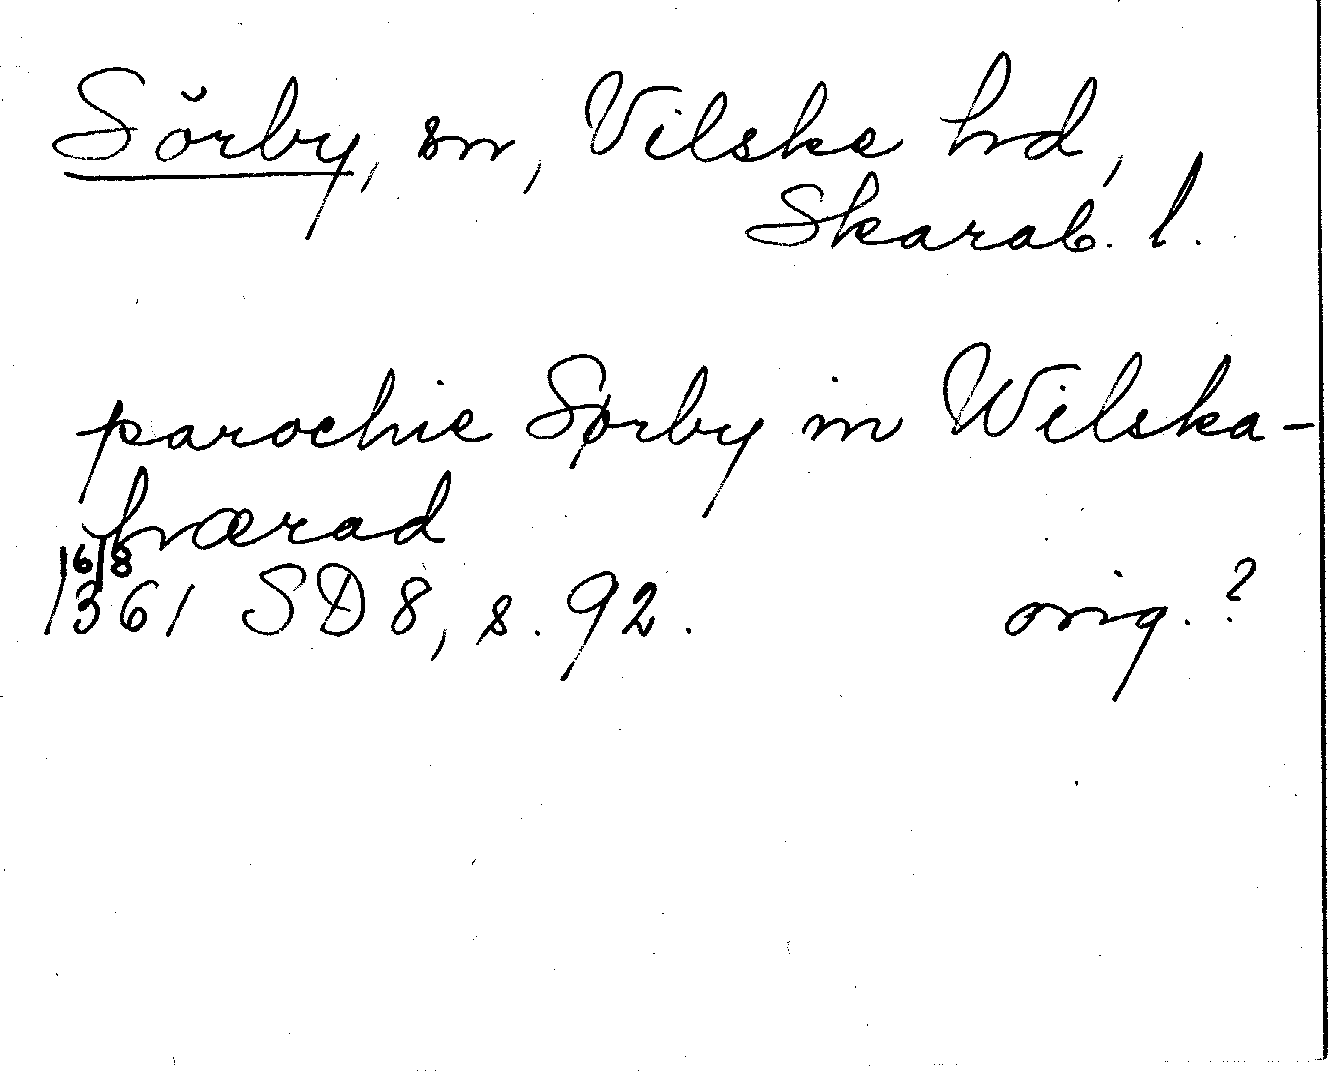 Sörby, sn, Vilske hd,
Skarab. l.
parochie Sørby in Wilska-
hærad
16/8
1361 SD 8, s. 92. orig. ?